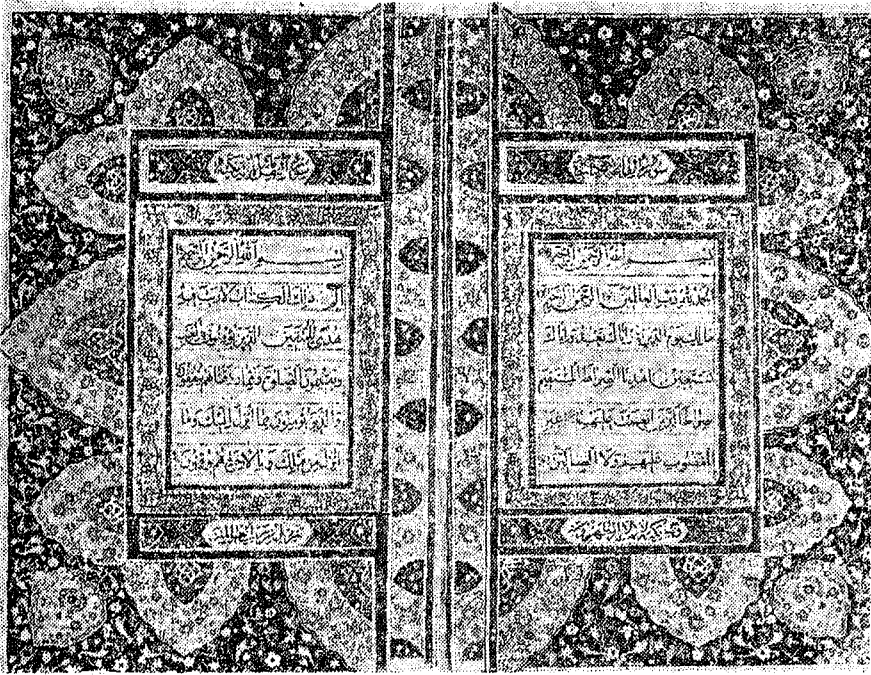 سورة الفاتحة
بسم الله الرحمن الرحيم
الحمد لله رب العالمين الرحمن الرحيم
مالك يوم الدين اياك نعبد واياك
نستعين اهدنا الصراط المستقيم
صراط الذين انعمت عليهم غير
المغضوب عليهم ولا الضالين
لا المطهرون
بسم الله الرحمن الرحيم
الم ذلك الكتاب لا ريب فيه
هدى للمتقين الذين يؤمنون بالغيب
ويقيمون الصلوة ومما رزقناهم ينفقون
والذين يؤمنون بما انزل اليك وما
انزل من قبلك وبالاخرة هم يوقنون
من رب العالمين